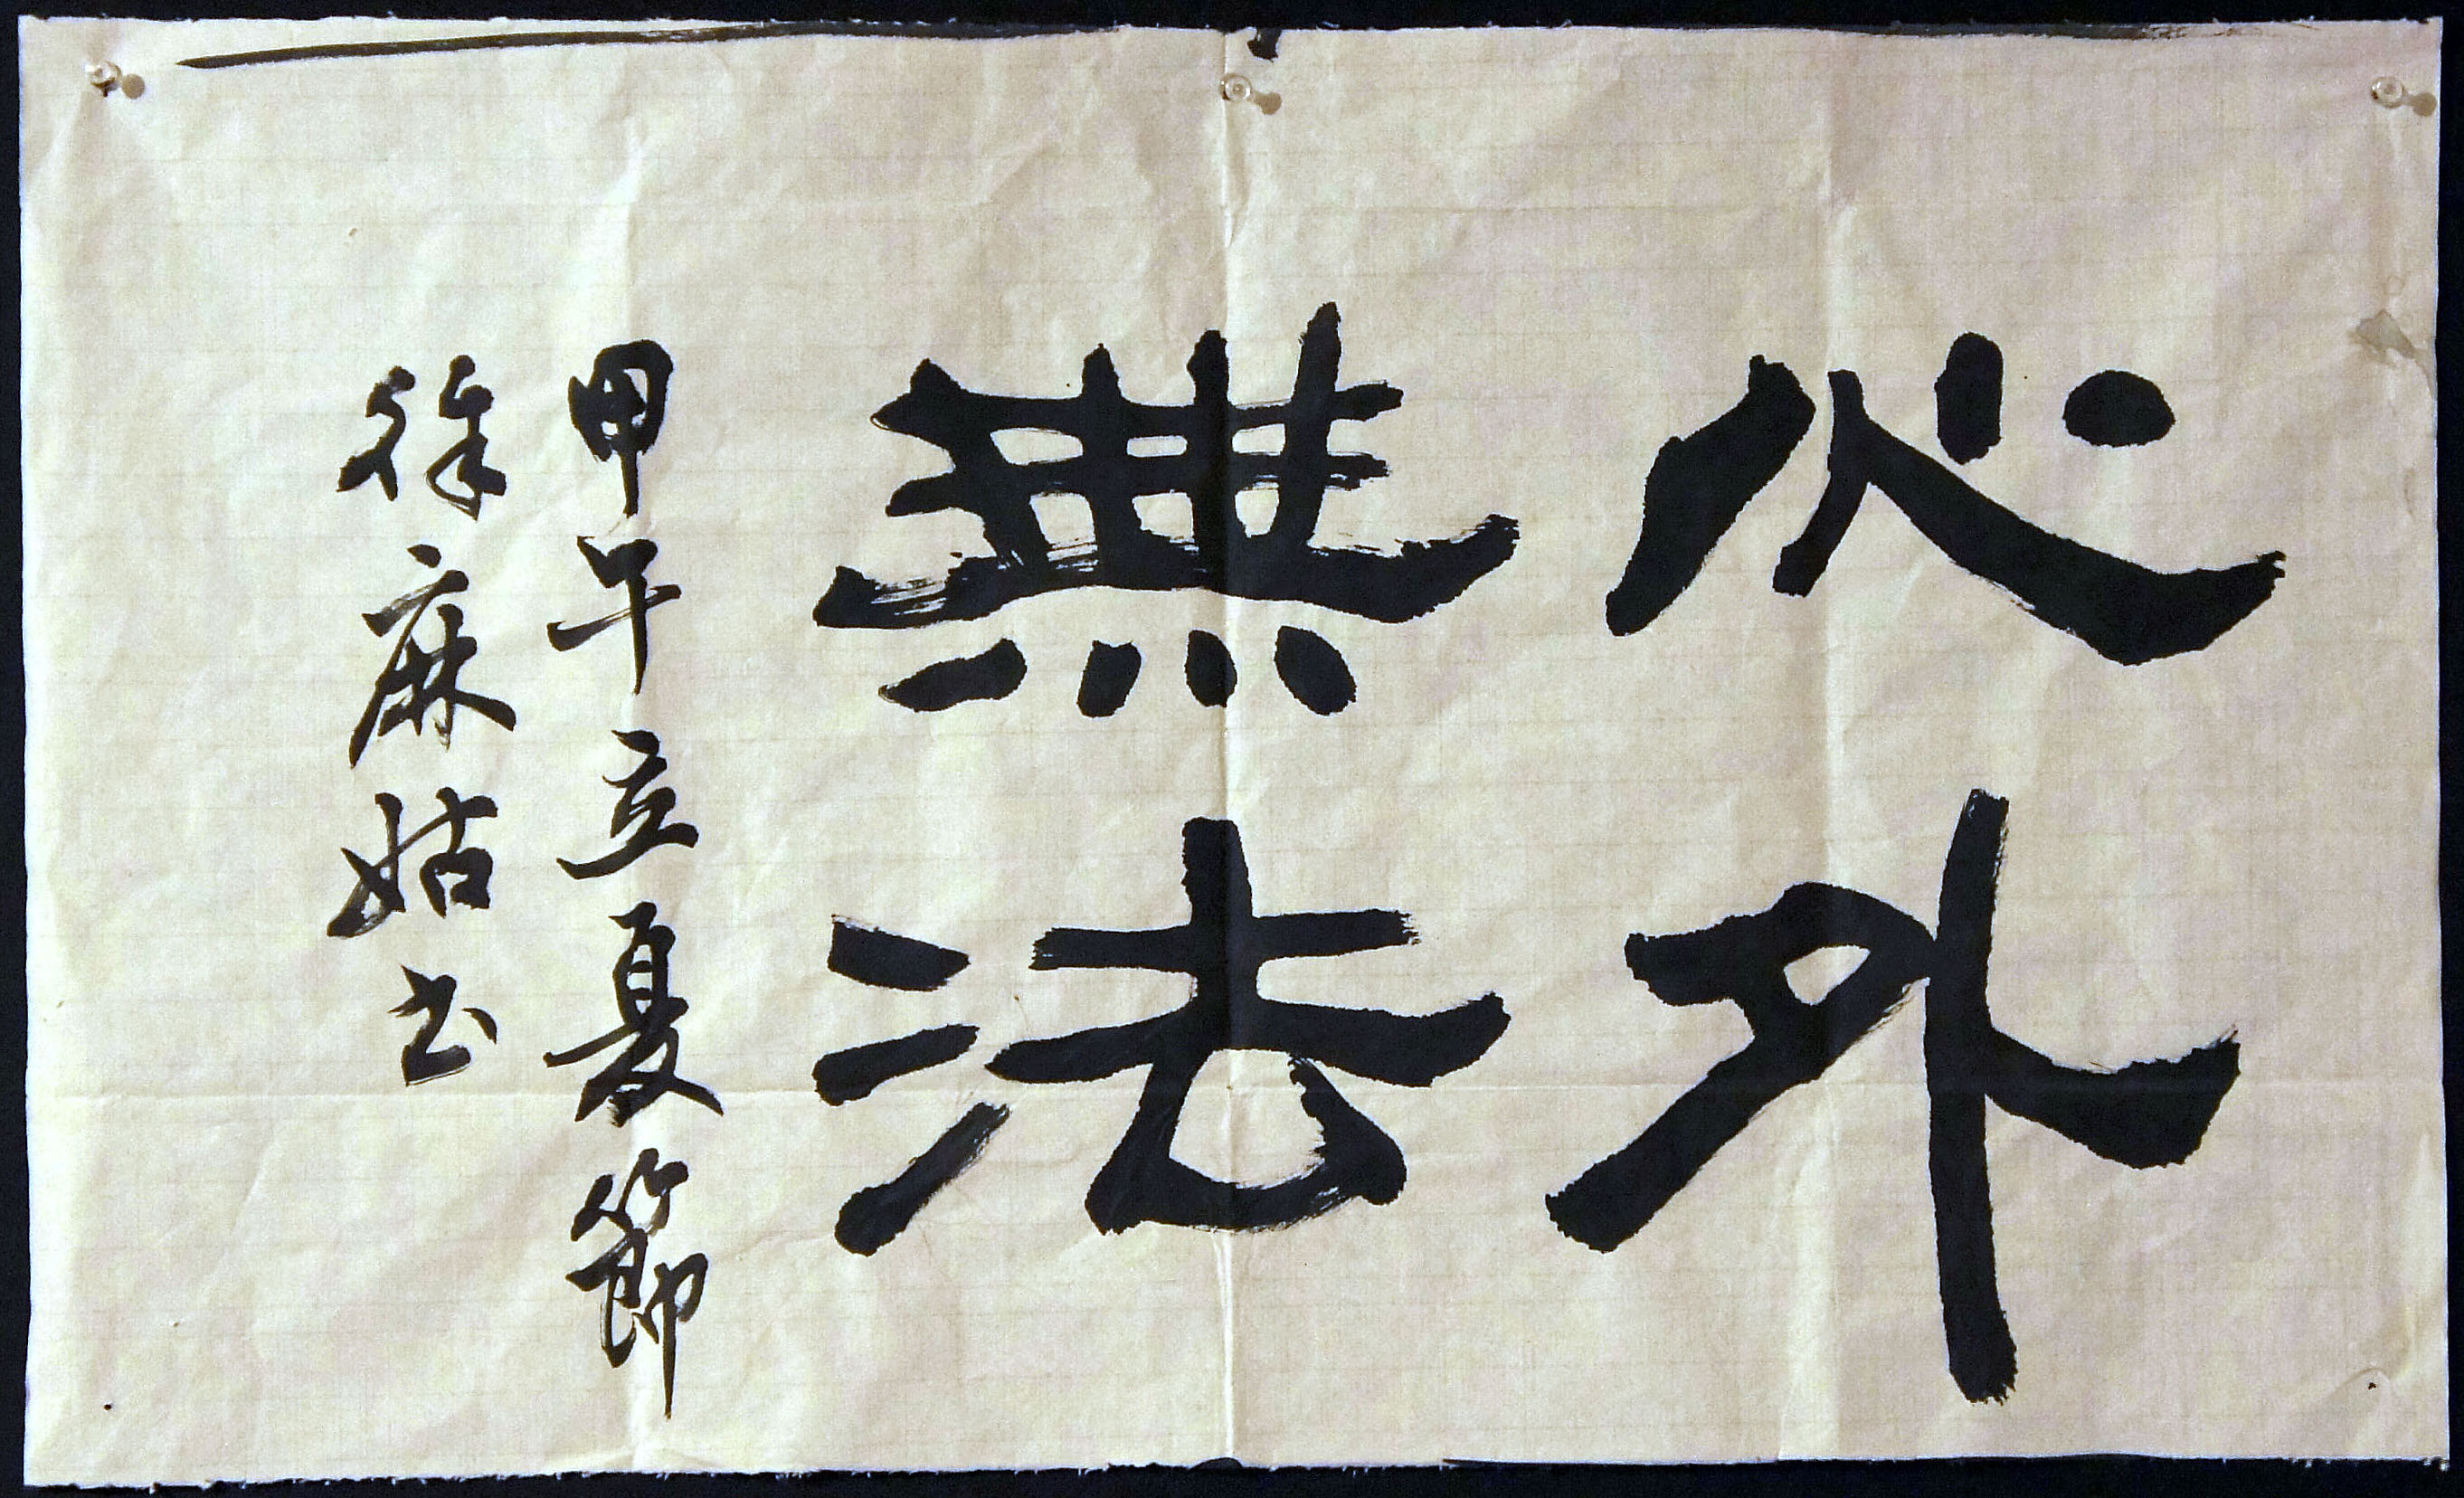 心外
無法
甲午立夏節
徐麻姑书